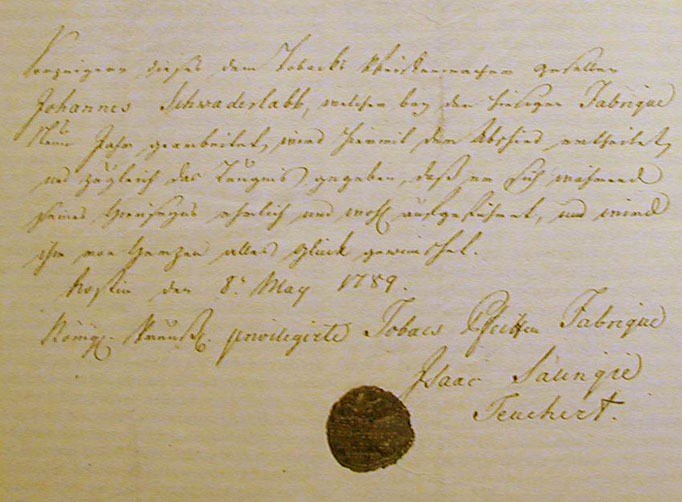 Vorzeigern dieses dem Tobacks Pfeiffenmacher gesellen
Johannes Schwaderlabb, welcher bey der hiesigen Fabrique
Neun Jahr gearbeitet, wird hiermit der Abschied ertheilet,
und zugleich das Zeugnis gegeben, daß er sich während
seines Hierseyns ehrlich und wohl aufgeführet, und wird
ihm von Herzen alles Glück gewünschet.
den 8. May 1789.
Königl. Preuß. privilegirte Tobacs Pfeiffen Fabrique
Isaac
Teuchert.